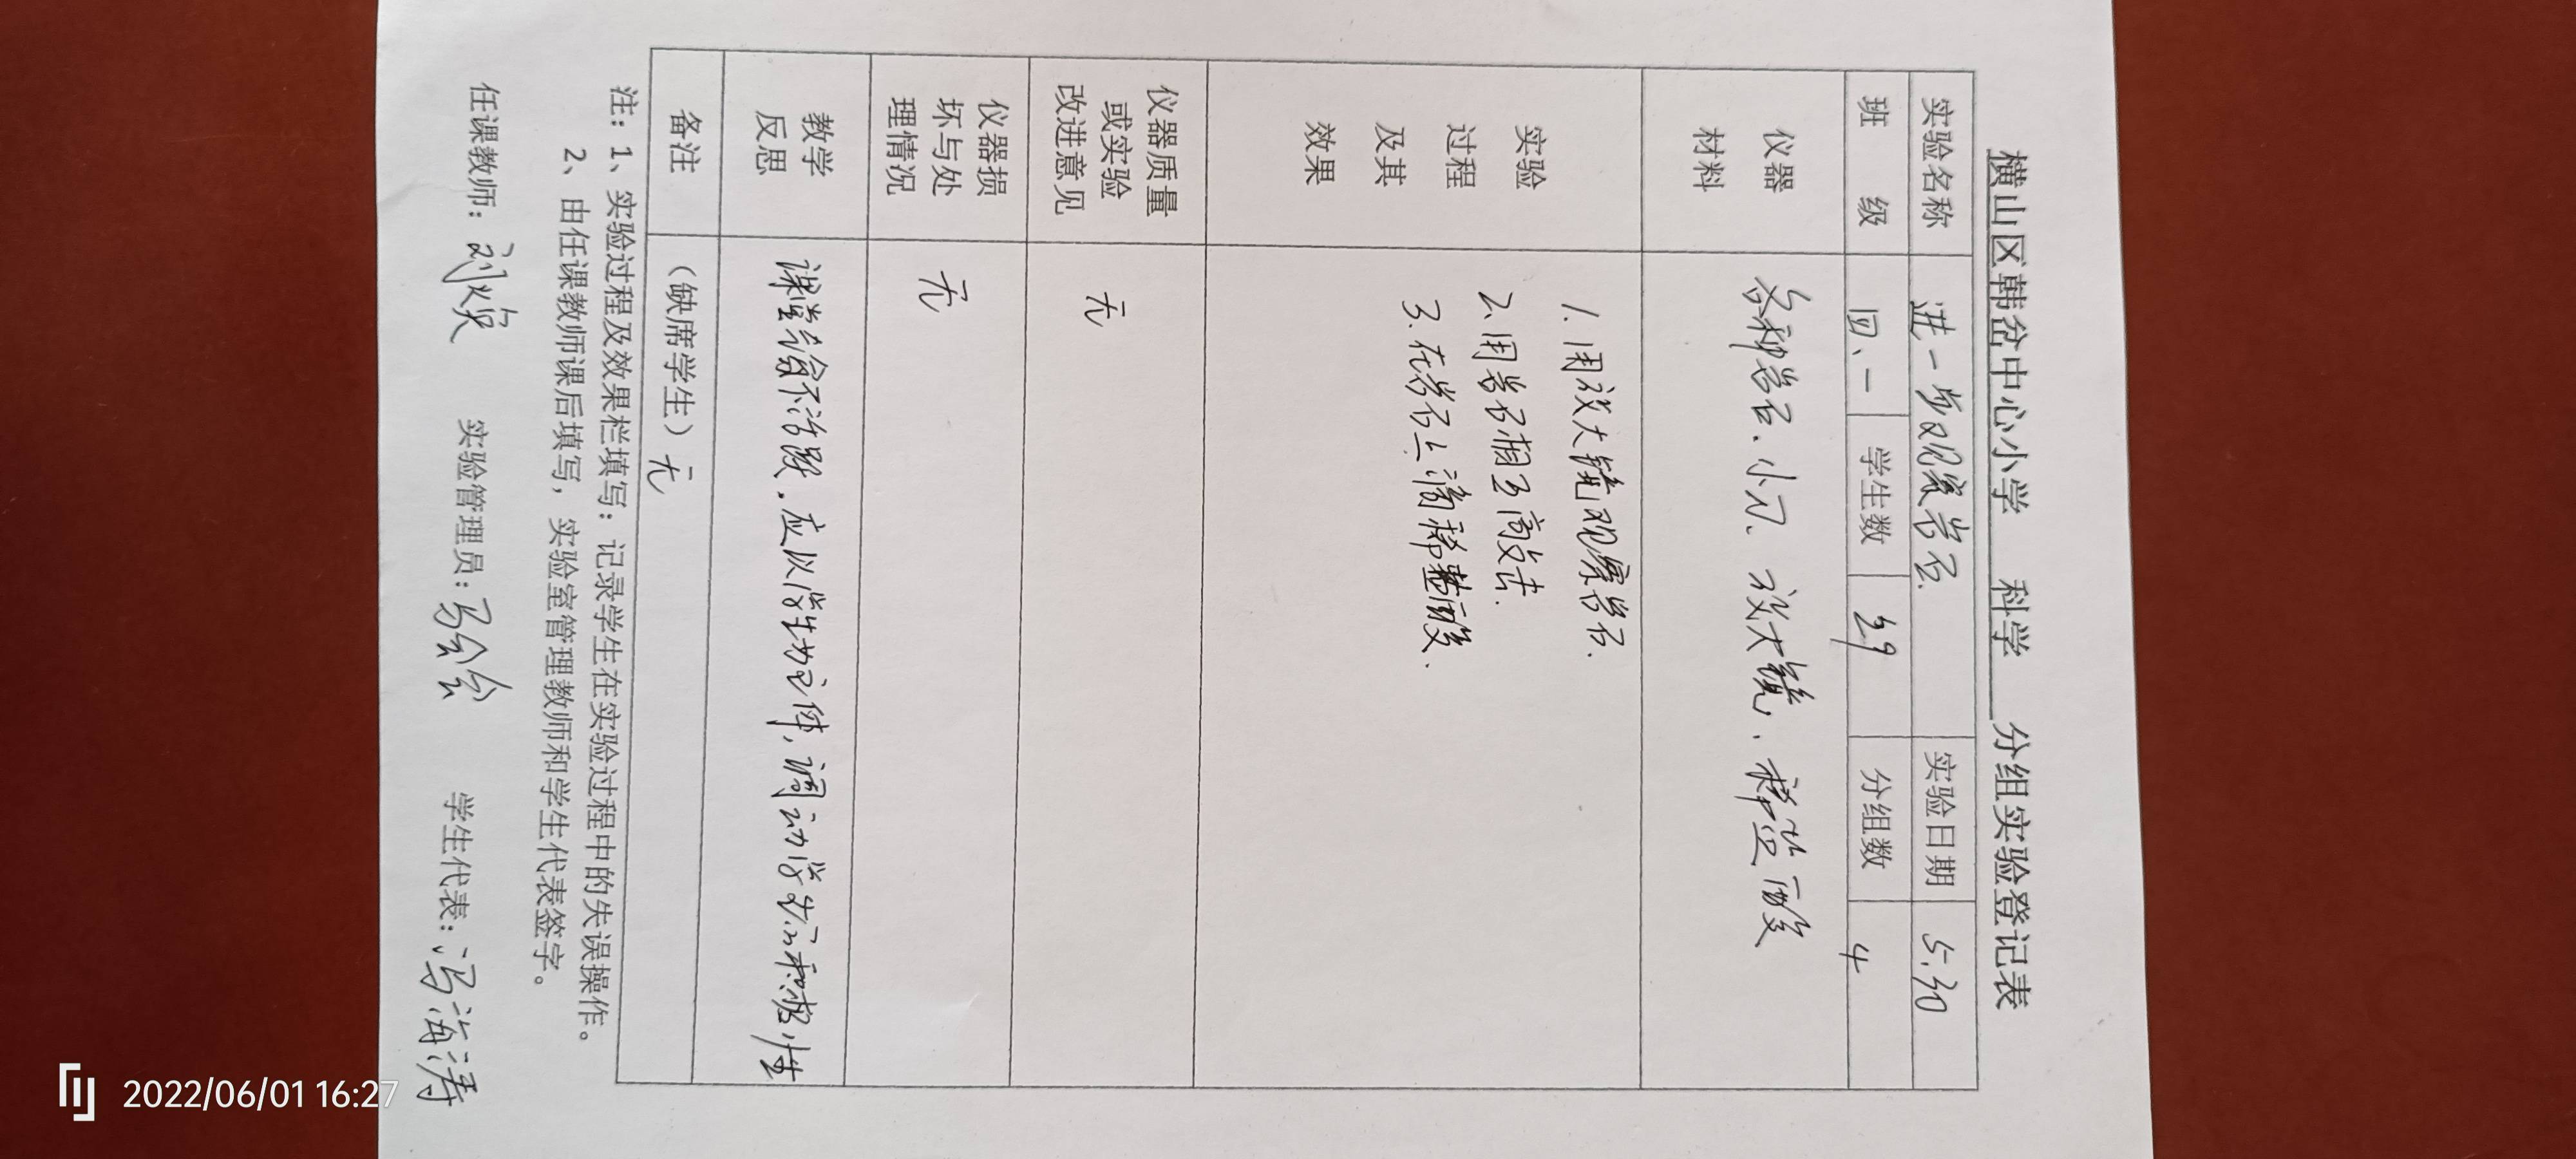 横山区韩岔中心小学 科学 分组实验登记表
实验名称 进一步观察岩石. 实验日期 5.30
班 级 四、一 学生数 29 分组数 4
仪器
材料
各种岩石、小刀、放大镜、稀盐酸
实验
过程
及其
效果
1.用放大镜观察岩石.
2.用岩石相互敲击.
3.在岩石上滴稀盐酸.
仪器质量
或实验
改进意见
无
仪器损
坏与处
理情况
无
教学
反思
课堂气氛不活跃.应以学生为主体,调动学生的积极性
备注 (缺席学生) 无
注: 1、实验过程及效果栏填写: 记录学生在实验过程中的失误操作。
2、由任课教师课后填写, 实验室管理教师和学生代表签字。
任课教师: 刘焕 实验管理员: 马会会 学生代表: 冯海涛
2022/06/01 16:27